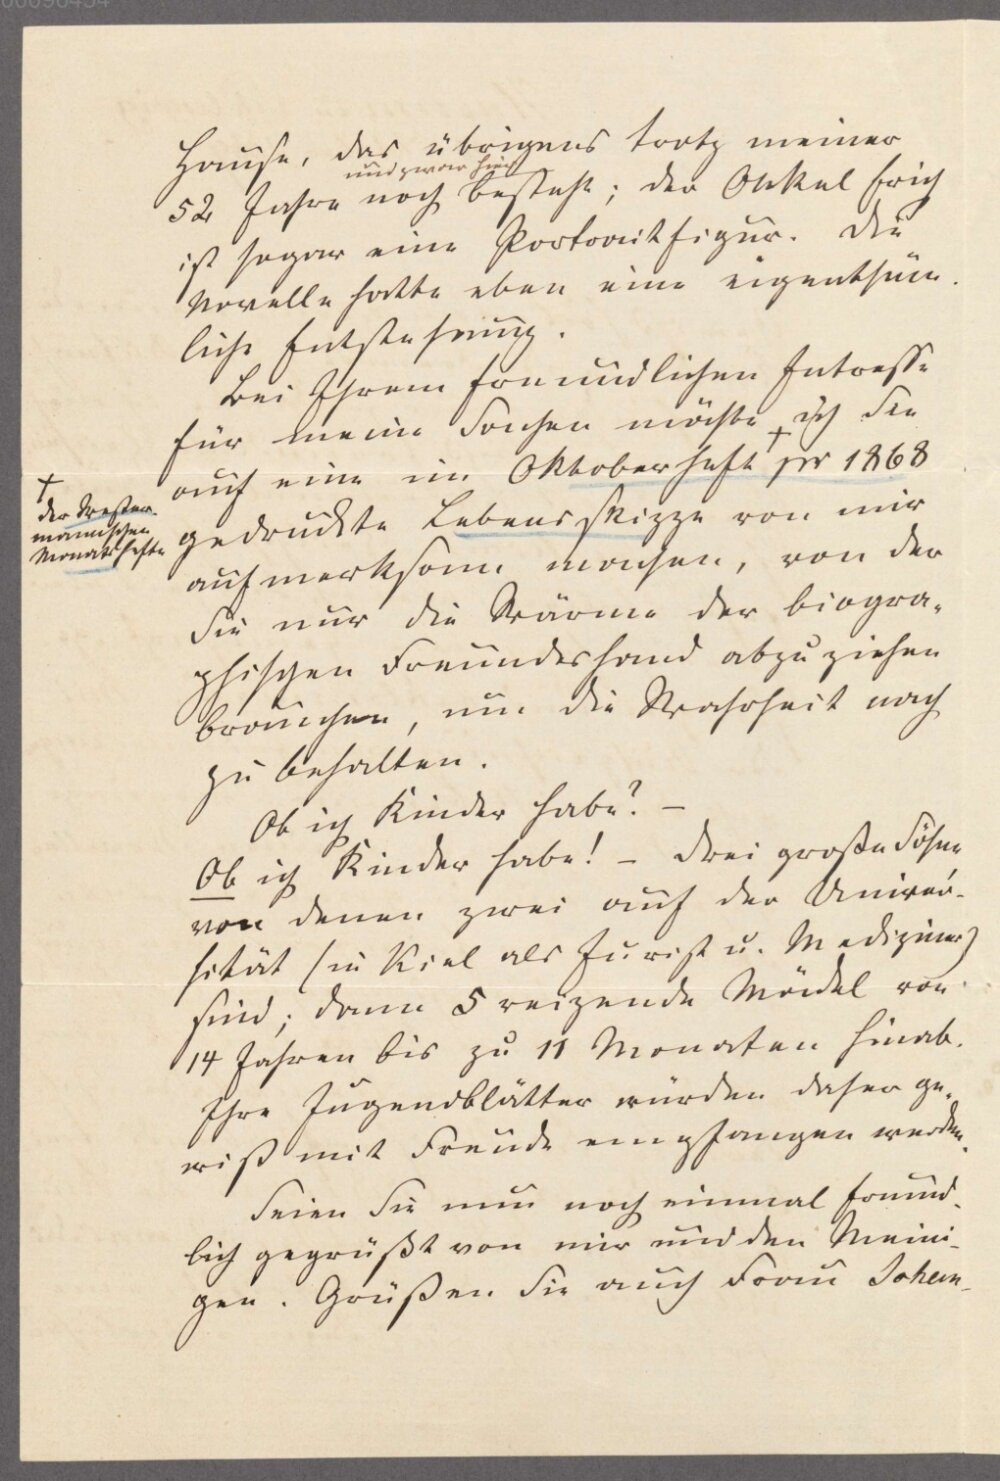 Hause, das übrigens trotz meiner
und zwar hier
52 Jahre noch besteht; der Onkel Erich
ist sogar eine Portraitfigur. Die
Novelle hatte eben eine eigenthüm-
liche Entstehung.
Bei Ihrem freundlichen Intresse
für meine Sachen möchte ich Sie
auf eine im Oktoberheft † pr 1868
† der Wester-
mannschen
Monatshefte
gedruckte Lebensskizze von mir
aufmerksam machen, von der
Sie nur die Wärme der biogra-
phischen Freundeshand abzuziehen
brauchen, um die Wahrheit nach
zu behalten.
Ob ich Kinder habe? –
Ob ich Kinder habe! – Drei große Söhne
von denen zwei auf der Univer-
sität (in Kiel als Jurist u. Mediziner)
sind; dann 5 reizende Mädel von
14 Jahren bis zu 11 Monaten hinab.
Ihre Jugendblätter würden daher ge-
wiß mit Freude empfangen werden.
Seien Sie nun noch einmal freund-
lich gegrüßt von mir und den Meini-
gen. Grüßen Sie auch Frau